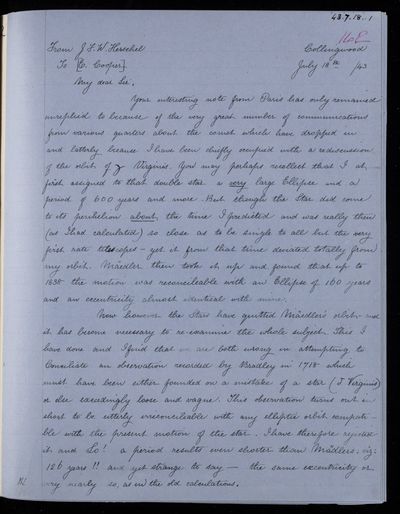 43.7.18..1
16E
From J. F. W. Herschel Collingwood
To [E. Cooper]. July 18th /43
My dear Sir.
Your interesting note from Paris has only remained
unreplied to because of the very great number of communications
from various quarters about the comet which have dropped in
and latterly because I have been chiefly occupied with a rediscussion
of the orbit of γ Virginis. You may perhaps recollect that I at
first assigned to that double star a very large Ellipse and a
period of 600 years and more. But though the Star did come
to its perihelion about the time I predicted and was really then
(as I had calculated) so close as to be single to all but the very
first rate telescopes - yet it from that time deviated totally from
my orbit. Mäedler then took it up and found that up to
1838 the motion was reconcileable with an Ellipse of 160 years
and an excentricity almost identical with mine.
Now however the Star have quitted Mäedler's orbit - and
it has become necessary to re-examine the whole subject. This I
have done and I find that we are both wrong in attempting to
Conciliate an observation recorded by Bradley in 1718 which
must have been either founded on a mistake of a star (J Virginis)
or else exceedingly loose and vague. This observation turns out in
short to be utterly irreconcileable with any elliptic orbit compati-
ble with the present motion of the star. I have therefore rejected
it and Lo! a period results even shorter than Mädlers: viz:
126 years!! and yet strange to say - the same excentricity or
very nearly so, as in the old calculations.